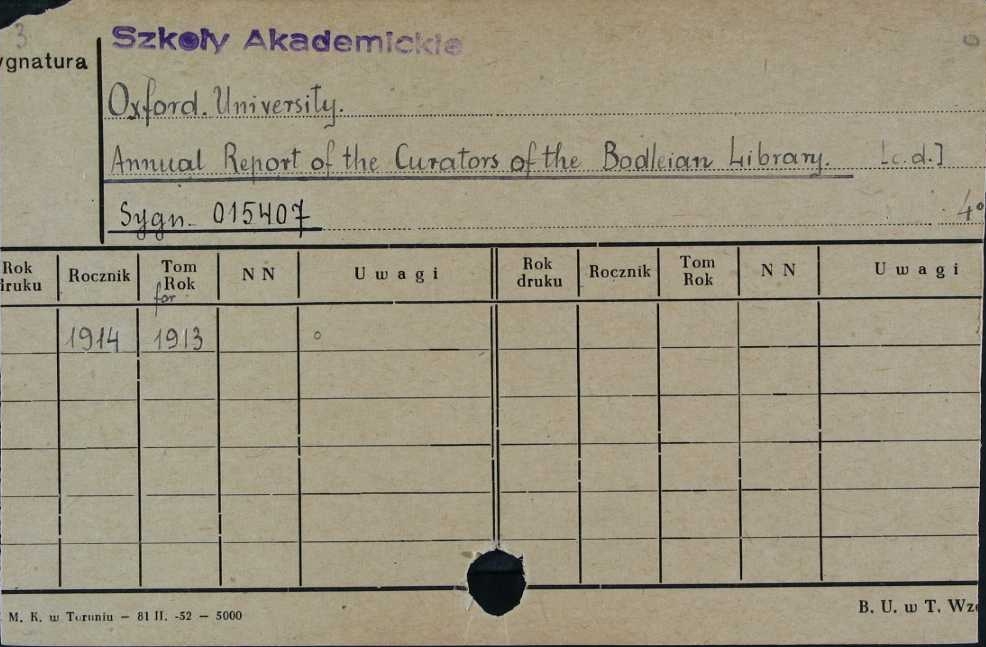 3
ygnatura
Szkoły Akademickie
Oxford. University.
Annual Report of the Curators of the Bodleian Library. [c.d.]
Sygn. 015407
4°
Rok druku Rocznik Tom Rok for N N Uwagi Rok druku Rocznik Tom Rok N N Uwagi
1914 1913
M. K. w Toruniu – 81 II. -52 – 5000
B. U. w T. Wz